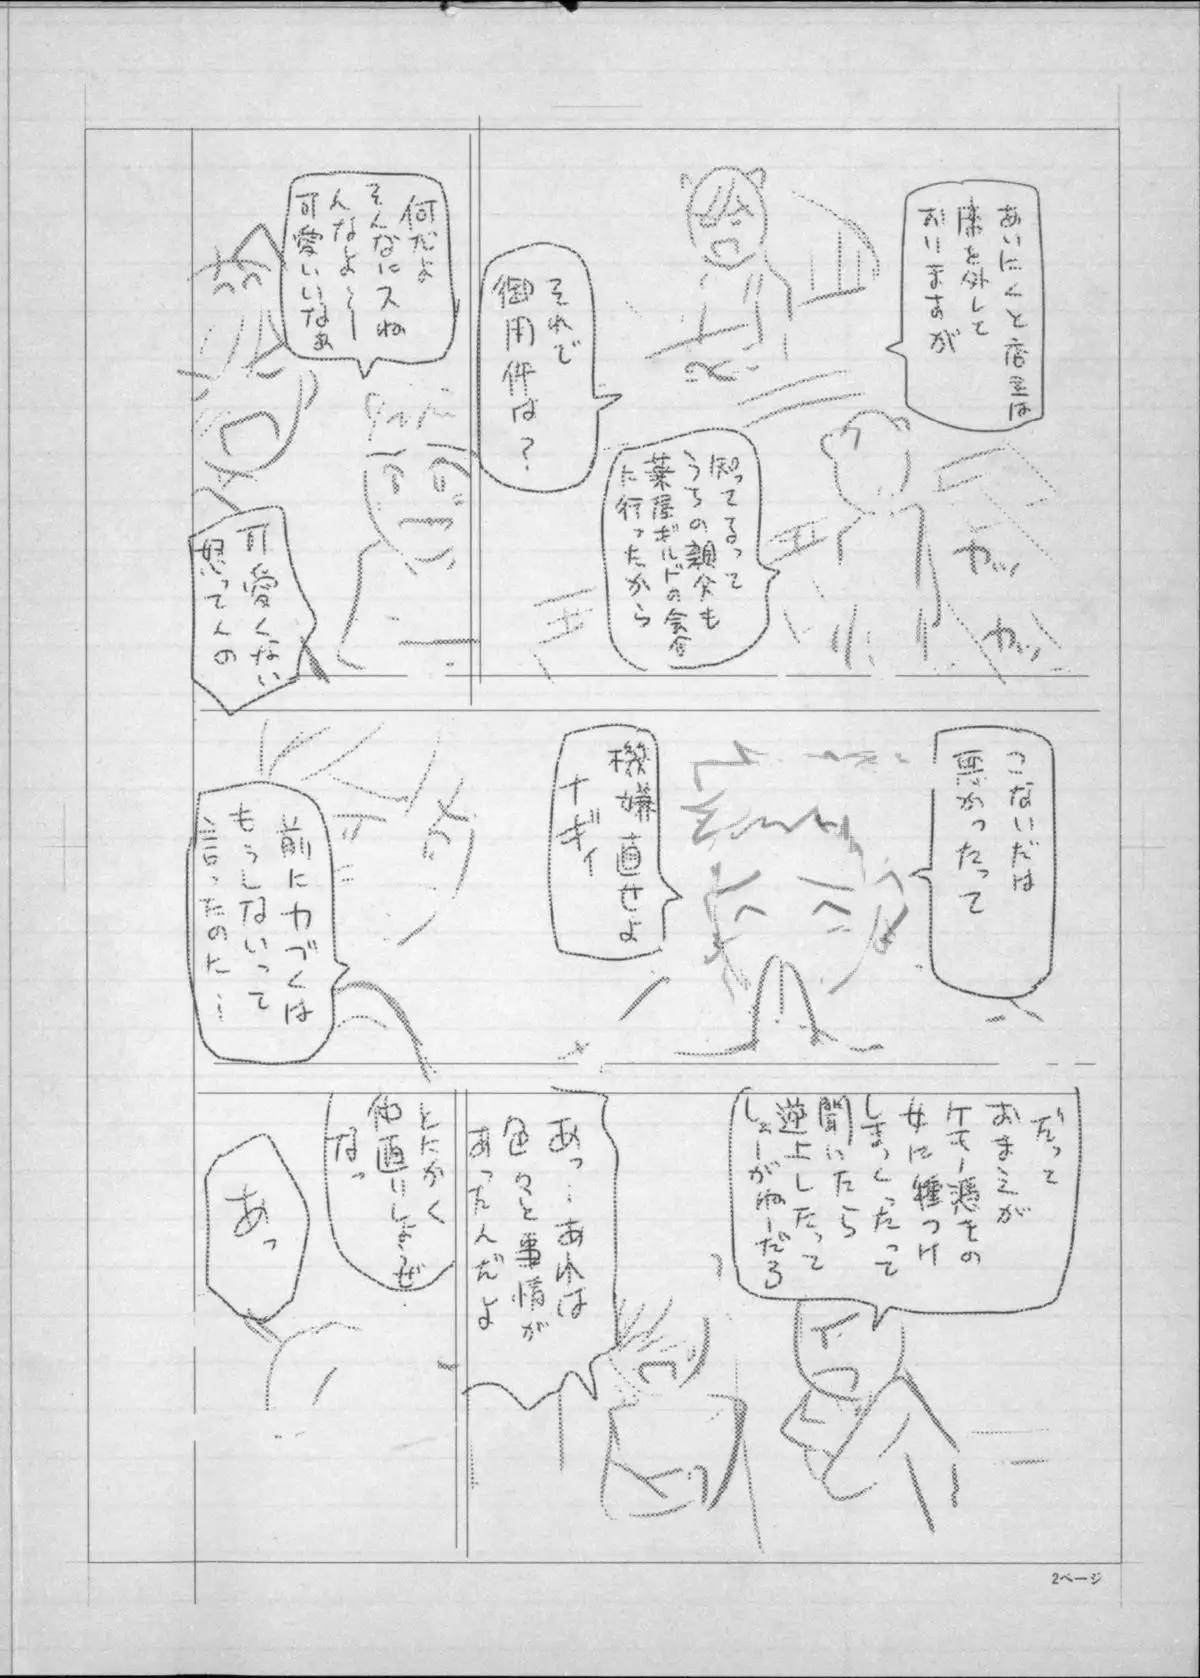 あいにくと店主は
席を外して
おりますが
知ってるって
うちの親父も
薬屋ギルドの会合
に行ったから
カッ
カッ
それで
御用件は?
何だよ
そんなにスね
んなよ〜
可愛いいなあ
可愛くない
怒ってんの
こないだは
悪かったって
機嫌直せよ
ナギィ
前に力づくは
もうしないって
言ったのに…
だって
おまえが
ケモノ憑きの
女に種つけ
しまくったって
聞いたら
逆上したって
しょーがねーだろ
あっ…あれは
色々と事情が
あったんだよ
とにかく
仲直りしようぜ
なっ
あっ
2ページ